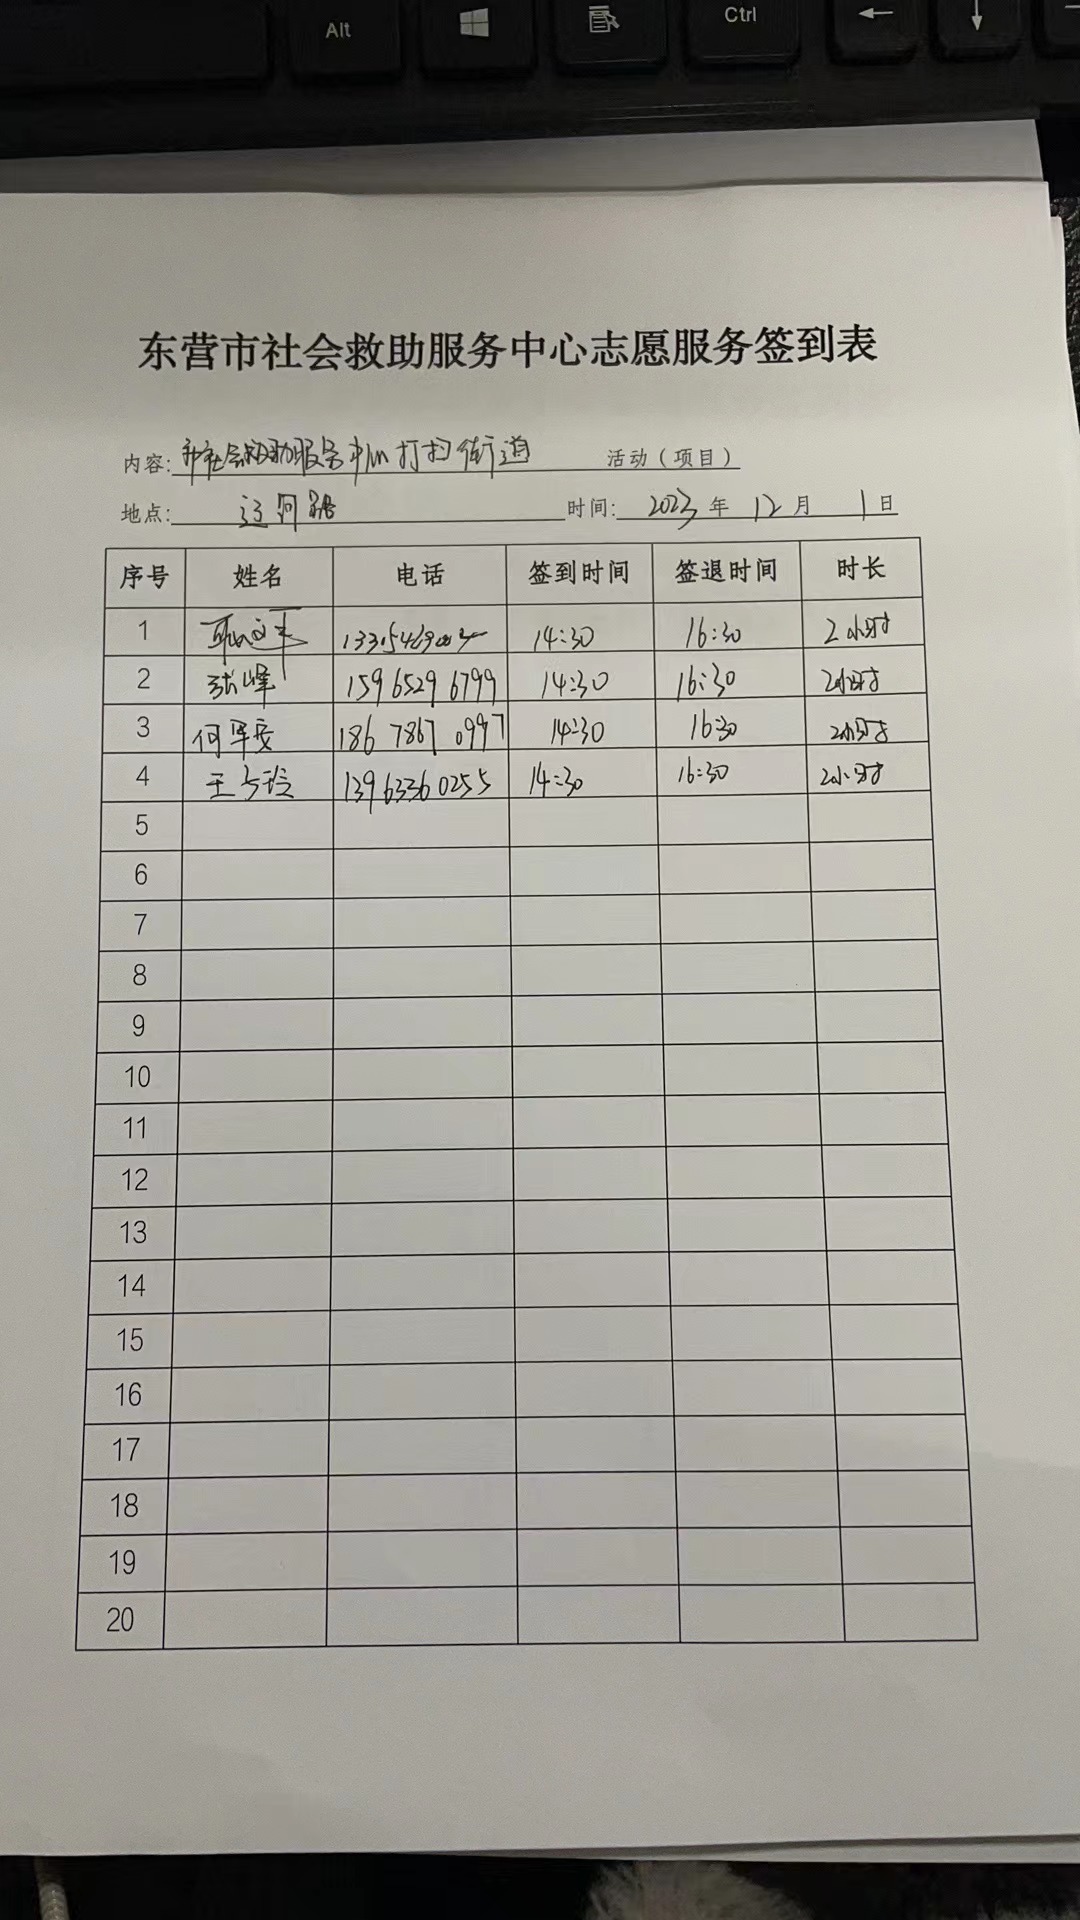 Alt
Ctrl
东营市社会救助服务中心志愿服务签到表
内容: 市社会救助服务中心打扫街道 活动（项目）
地点: 辽河路 时间: 2023 年 12 月 1 日
序号 姓名 电话 签到时间 签退时间 时长
1 14:30 16:30 2小时
2 张峰 15965296799 14:30 16:30 2小时
3 何军安 186 7867 0997 14:30 16:30 2小时
4 王 13963360255 14:30 16:30 2小时
5
6
7
8
9
10
11
12
13
14
15
16
17
18
19
20